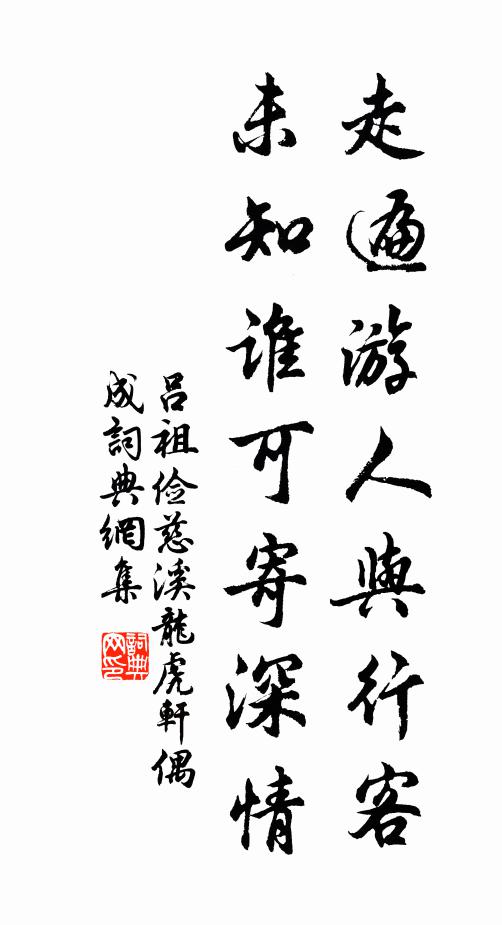 走遍游人與行客
未知誰可寄深情
呂祖儉慈溪龍虎軒偶
成詞典網集
詞典網印